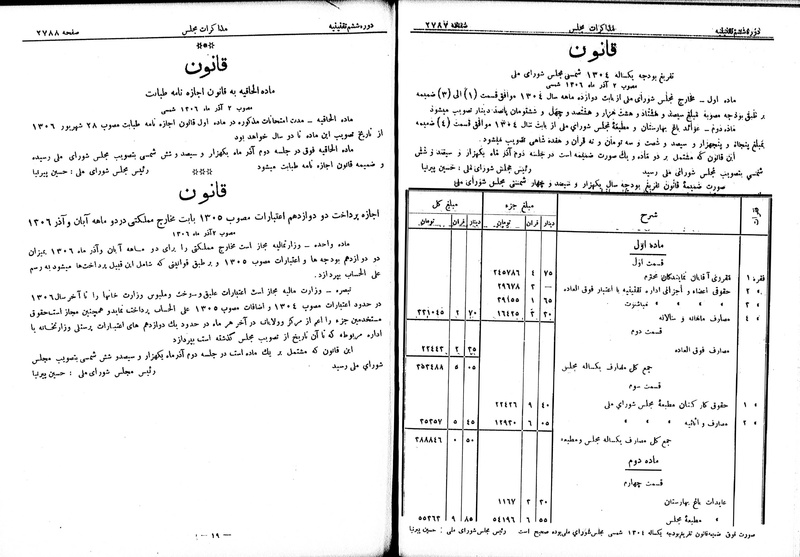 دوره ششم تقنینیه
مذاکرات مجلس
صفحه ۲۷۸۷
قانون
تفریغ بودجه یکساله ۱۳۰۴ شمسی مجلس شورای ملی
مصوب ۲ آذر ماه ۱۳۰۶ شمسی
ماده اول – مخارج مجلس شورای ملی از بابت دوازده ماهه سال ۱۳۰۴ موافق قسمت (۱) الی (۳) ضمیمه
بر طبق بودجه مصوبه بمبلغ سیصد و هشتاد و هشت هزار و هشتصد و چهل و شش تومان پانصد دینار تصویب میشود
ماده دوم – عوائد باغ بهارستان و مطبعهٔ مجلس شورای ملی از بابت سال ۱۳۰۴ موافق قسمت (٤) ضمیمه
بمبلغ پنجاه و پنجهزار و سیصد و شصت و سه تومان و نه قران و هفده شاهی تصویب میشود
این قانون که مشتمل بر دو ماده و یک صورت ضمیمه است در جلسه دوم آذر ماه یکهزار و سیصد و شش
شمسی بتصویب مجلس شورای ملی رسید
رئیس مجلس شورای ملی : حسین پیرنیا
صورت ضمیمهٔ قانون تفریغ بودجه سال یکهزار و سیصد و چهار شمسی مجلس شورای ملی
فقرات شرح مبلغ جزء مبلغ کل
دینار قران تومان دینار قران تومان
ماده اول
قسمت اول
فقره ۱ مقرری آقایان نمایندگان محترم ۷۵ ٤ ۲٤۵۷۸٦
» ۲ حقوق اعضاء و اجزائی اداره تقنینیه با اعتبار فوق العاده — ۲ ۲۹٦۷۸
» ۳ » » » مباشرت ٦۵ ۱ ۳۹۱۵۵
» ٤ مصارف ماهانه و سالانه ۳۰ ۳ ۱٦٤۲۵ ۷۰ ۲ ۳۳۱۰٤۵
قسمت دوم
مصارف فوق العاده ۳۵ ۲ ۲۲٤٤۲
جمع کل مصارف یکساله مجلس ۰۵ ۵ ۳۵۳٤۸۸
قسمت سوم
» ۱ حقوق کارکنان مطبعهٔ مجلس شورای ملی ٤۰ ۹ ۲۲٤۲٦
» ۲ مصارف و اثاثیه » » » ۰۵ ٦ ۱۲۹۳۰ ٤۵ ۵ ۳۵۳۵۷
جمع کل مصارف یکساله مجلس و مطبعه ۵۰ ۰ ۳۸۸۸٤٦
ماده دوم
قسمت چهارم
عایدات باغ بهارستان ۳۰ ۳ ۱۱٦۷
» مطبعهٔ مجلس ۵۵ ٦ ۵٤۱۹٦ ۸۵ ۹ ۵۵۳٦۳
صورت فوق ضمیمه قانون تفریغ بودجه یکساله ۱۳۰٤ شمسی مجلس شورای ملی بوده صحیح است رئیس مجلس شورای ملی : حسین پیرنیا
دوره ششم تقنینیه
مذاکرات مجلس
صفحه ۲۷۸۸
قانون
ماده الحاقیه به قانون اجازه نامه طبابت
مصوب ۲ آذر ماه ۱۳۰۶ شمسی
ماده الحاقیه – مدت امتحانات مذکوره در ماده اول قانون اجازه نامه طبابت مصوب ۲۸ شهریور ۱۳۰۶
از تاریخ تصویب این ماده تا دو سال خواهد بود
ماده الحاقیه فوق در جلسه دوم آذر ماه یکهزار و سیصد و شش شمسی بتصویب مجلس شورای ملی رسیده
و ضمیمه قانون اجازه نامه طبابت میشود
رئیس مجلس شورای ملی : حسین پیرنیا
قانون
اجازه پرداخت دو دوازدهم اعتبارات مصوب ۱۳۰۵ بابت مخارج مملکتی در دو ماهه آبان و آذر ۱۳۰۶
مصوب ۲ آذر ماه ۱۳۰۶
ماده واحده – وزارت مالیه مجاز است مخارج مملکتی را برای دو ماهه آبان و آذر ماه ۱۳۰۶ بمیزان
دو دوازدهم بودجه ها و اعتبارات مصوب ۱۳۰۵ و بر طبق قوانینی که شامل این قبیل پرداختها میشود به رسم
علی الحساب بپردازد.
تبصره – وزارت مالیه مجاز است اعتبارات علیق و سوخت و ملبوس وزارت خانها را تا آخر سال ۱۳۰۶
در حدود اعتبارات مصوب ۱۳۰۴ و اضافات مصوب ۱۳۰۵ علی الحساب پرداخت نماید و همچنین مجاز است حقوق
مستخدمین جزء را اعم از مرکز و ولایات در آخر هر ماه در حدود یک دوازدهم های اعتبارات پرسنلی وزارتخانه یا
اداره مربوطه که تا آن تاریخ از تصویب مجلس گذشته است بپردازد
این قانون که مشتمل بر یک ماده است در جلسه دوم آذر ماه یکهزار و سیصد و شش شمسی بتصویب مجلس
شورای ملی رسید
رئیس مجلس شورای ملی : حسین پیرنیا
— ۱۹ —